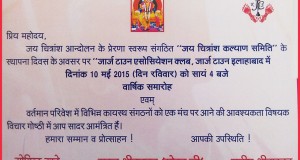 प्रिय महोदय,
जय चित्रांश आन्दोलन के प्रेरणा स्वरूप संगठित "जय चित्रांश कल्याण समिति" के
स्थापना दिवस के अवसर पर "जार्ज टाउन एसोसियेशन क्लब, जार्ज टाउन इलाहाबाद में
दिनांक 10 मई 2015 (दिन रविवार) को सायं 4 बजे
वार्षिक समारोह
एवम्
वर्तमान परिवेश में विभिन्न कायस्थ संगठनों को एक मंच पर आने की आवश्यकता विषयक
विचार गोष्ठी में आप सादर आमंत्रित हैं।
हमारा सम्मान व प्रोत्साहन ! आपकी उपस्थिति !